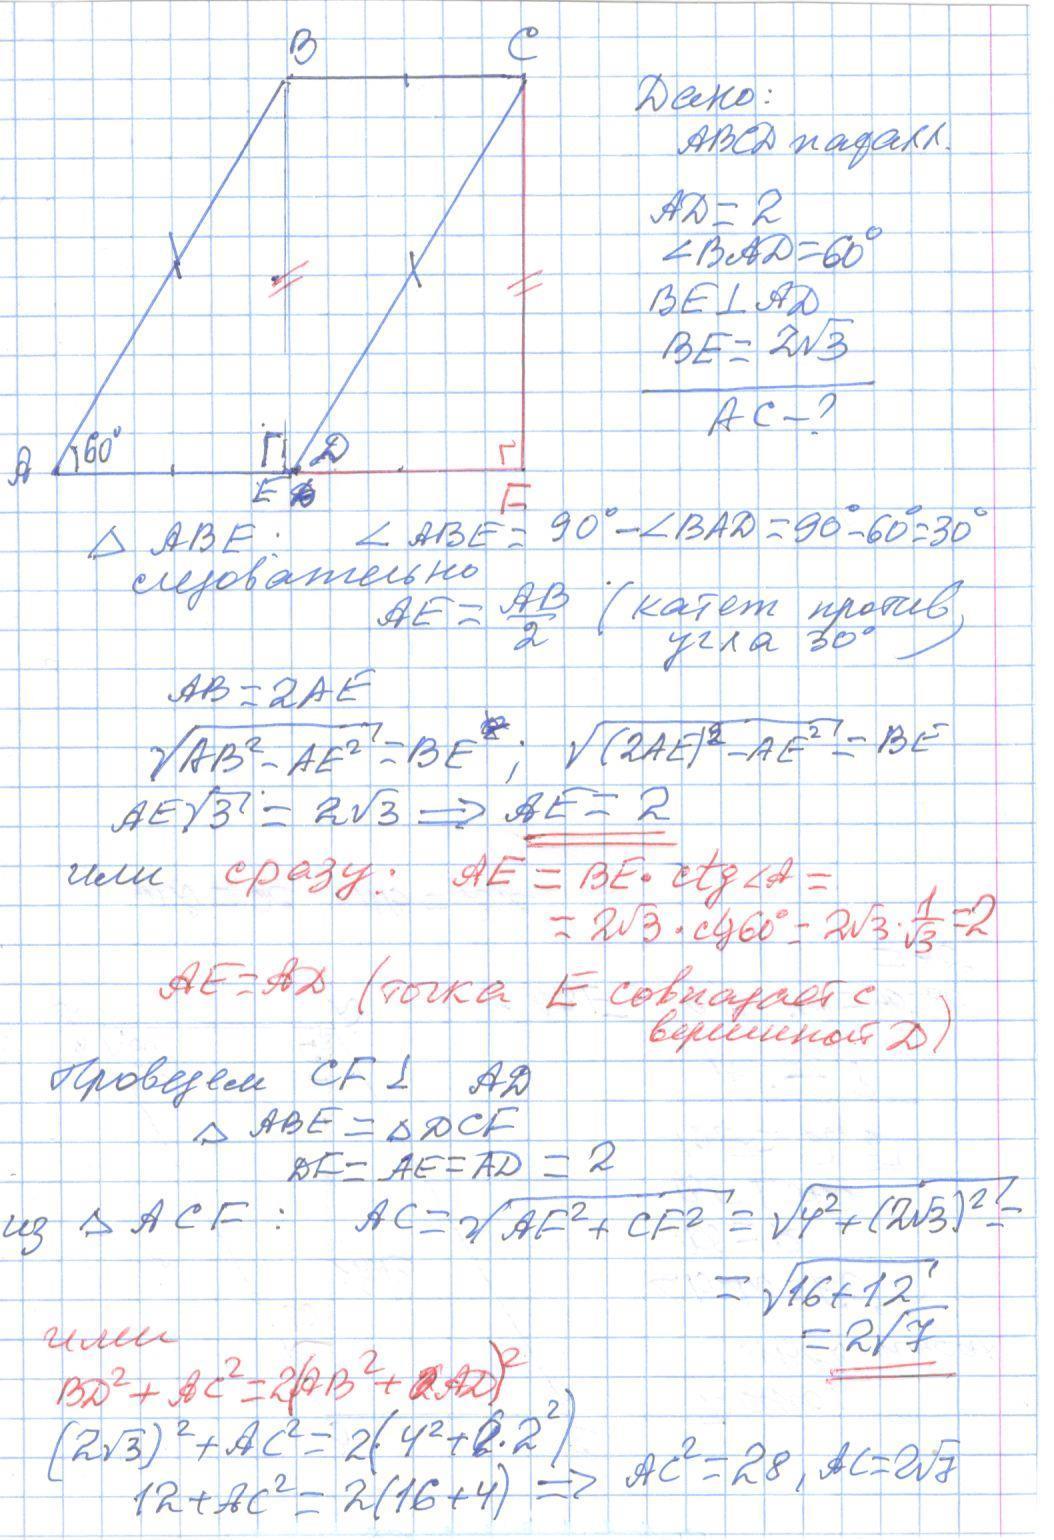 B C
Дано:
ABCD паралл.
AD = 2
∠BAD = 60°
BE ⊥ AD
BE = 2√3
AC - ?
A 60° D
E F
△ ABE: ∠ABE = 90° - ∠BAD = 90° - 60° = 30°
следовательно
AE = AB/2 (катет против
угла 30°)
AB = 2AE
√(AB² - AE²) = BE; √((2AE)² - AE²) = BE
AE√3 = 2√3 ⇒ AE = 2
или сразу: AE = BE · ctg∠A =
= 2√3 · ctg60° = 2√3 · 1/√3 = 2
AE = AD (точка E совпадает с
вершиной D)
Проведем CF ⊥ AD
△ ABE = △ DCF
DF = AE = AD = 2
из △ ACF: AC = √(AF² + CF²) = √(4² + (2√3)²) =
= √(16 + 12)
= 2√7
или
BD² + AC² = 2(AB² + AD)²
(2√3)² + AC² = 2(4² + 2²)
12 + AC² = 2(16 + 4) ⇒ AC² = 28, AC = 2√7